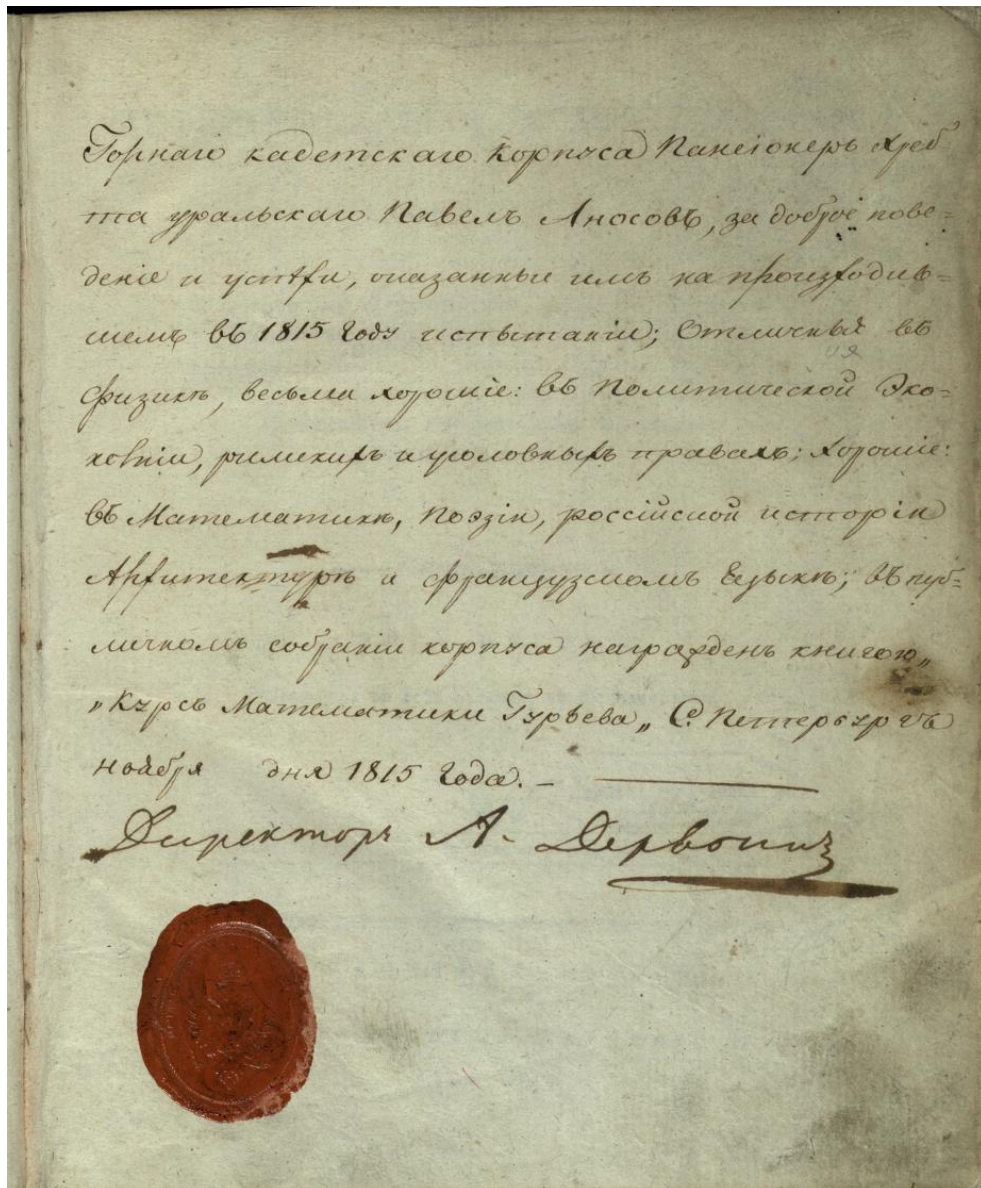 Горнаго кадетскаго Корпуса Пансіонеръ хреб
та уральскаго Павелъ Аносовъ, за доброе пове=
деніе и успѣхи, оказанные имъ на производив=
шемъ въ 1815 году испытаніи; Отличныя въ
Физикѣ, весьма хорошіе: въ Политической Эко=
номіи, римскихъ и уголовныхъ правахъ; хорошіе:
въ Математикѣ, Поэзіи, россійской исторіи
Архитектурѣ и французскомъ Языкѣ; въ пуб=
личномъ собраніи корпуса награжденъ книгою„
„Курсъ Математики Гурьева„ С. Петербургъ
ноября дня 1815 года. –
Директоръ А.